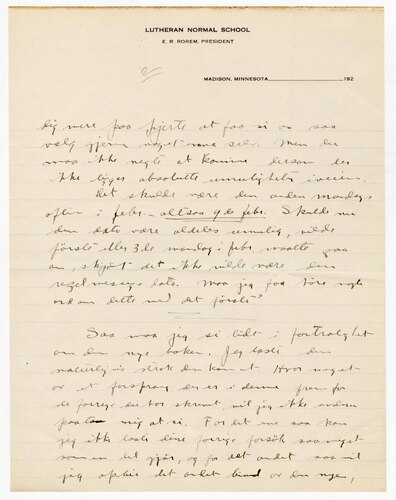 LUTHERAN NORMAL SCHOOL
E. R. ROREM, PRESIDENT
2/
MADISON, MINNESOTA 192
dig mere paa hjerte at faa si os saa
velg gjerne noget emne selv. Men du
maa ikke negte at komme dersom der
ikke ligger absolutte umuligheter iveien.
Det skulde være den anden mandags
aften i febr. - altsaa 9de febr. Skulde nu
den dato være aldeles umulig, vilde
første eller 3de mandag i febr. maatte gaa
an, skjønt det ikke vilde være den
regelmessige dato. Maa jeg faa høre nogle
ord om dette med det første?
Saa maa jeg si lidt i fortrolighet
om den nye boken. Jeg læste den
naturligvis straks den kom ut. Hvor meget
av et forsprang der er i denne frem for
de forrige du har skrevet, vil jeg ikke
mig at si. For det ene saa kan
jeg ikke læste dine forrige forsøk saa meget
som en det gjør, og for det andet saa vil
jeg det ordet om den nye,